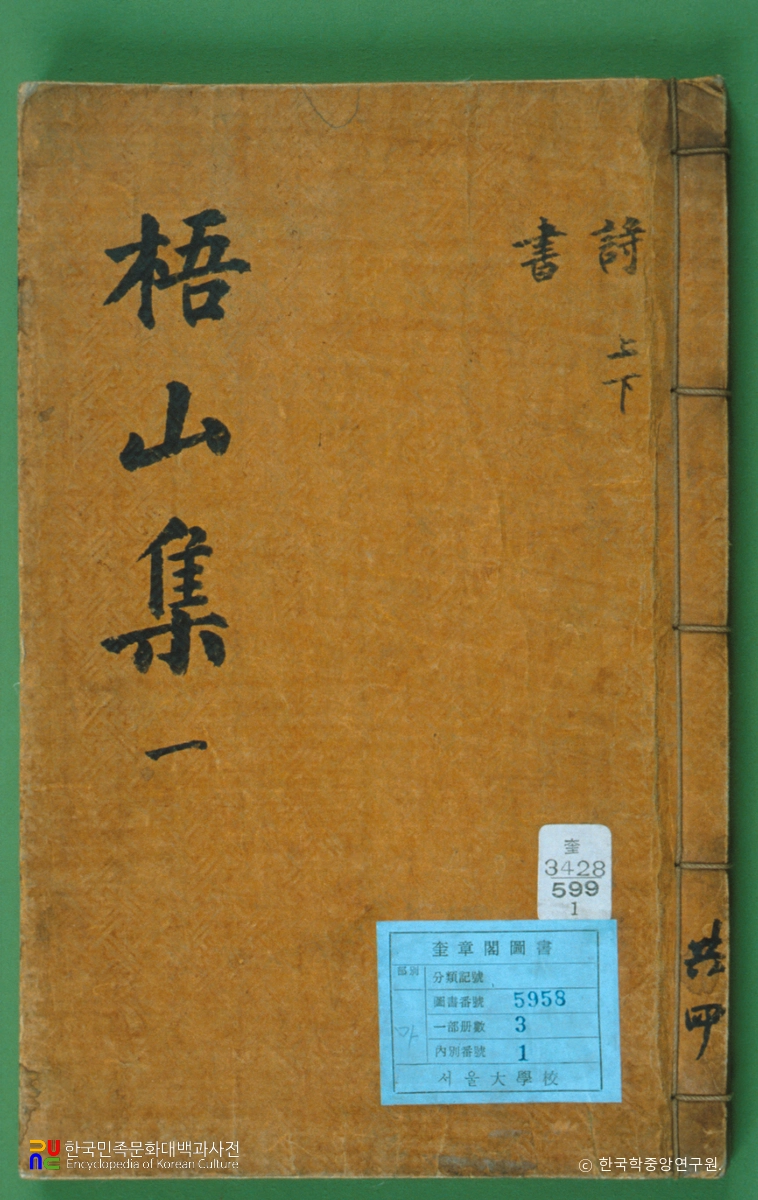 梧山集 一
詩 上
下
書
共四
奎
3428
599
1
奎章閣圖書
部別
分類記號
圖書番號 5958
一部册數 3
內別番號 1
서울大學校
한국민족문화대백과사전
Encyclopedia of Korean Culture
© 한국학중앙연구원.